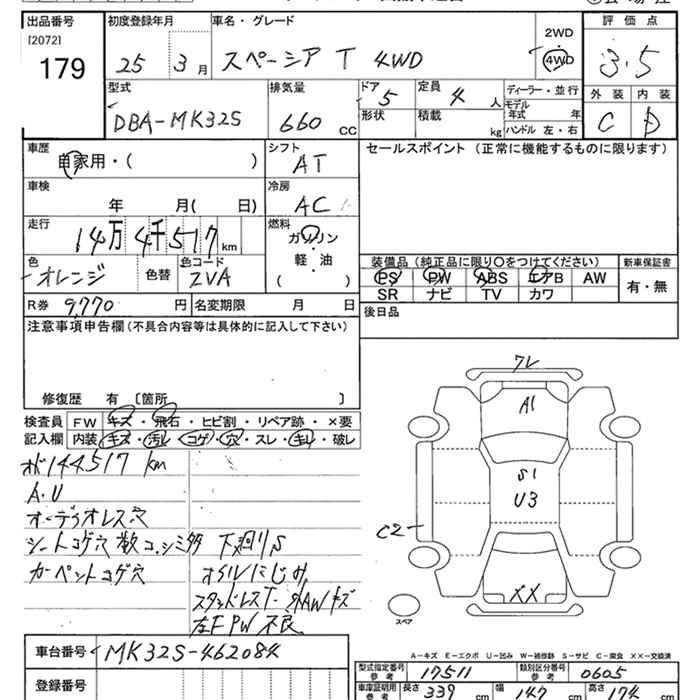 出品番号 初度登録年月 車名・グレード 2WD 評価点
[2072] 179 25 3月 スペーシア T 4WD 4WD 3.5
型式 排気量 ドア 定員 ディーラー・並行 外装 内装
DBA-MK32S 660 CC 5 4人 モデル年式 年 C D
形状 積載 kg ハンドル 左・右
車歴 シフト セールスポイント (正常に機能するものに限ります)
自家用・( ) AT
車検 冷房
年 月( 日) AC
走行 燃料
14万4千517km ガソリン・軽・油 ( )
色 色コード 装備品 (純正品に限り○をつけてください) 新車保証書
オレンジ 色替 ZVA PS PW ABS エアB AW 有・無
SR ナビ TV カワ
R券 9,770円 名変期限 月 日 後日品
注意事項申告欄 (不具合内容等は具体的に記入して下さい)
修復歴 有 〔箇所 〕
検査員 FW キズ・飛石・ヒビ割・リペア跡・×要
記入欄 内装 キズ・汚れ・コゲ・穴・スレ・キレ・破レ
メーカ 144517 km
A.U
オーディオレス穴
シートコゲ穴 数コ、シミ多 下廻りS
カーペットコゲ穴 オイルにじみ
スタッドレスT・外AWキズ
左F PW不良
ワレ
A1
S1
U3
C2
XX
スペア
A-キズ E-エクボ U-凹み W-補修跡 S-サビ C-腐食 XX-交換済
車台番号 MK32S-462084 型式指定番号 参考 17511 類別区分番号 参考 0605
登録番号 車庫証明用 参考 長さ 339 cm 幅 147 cm 高さ 174 cm